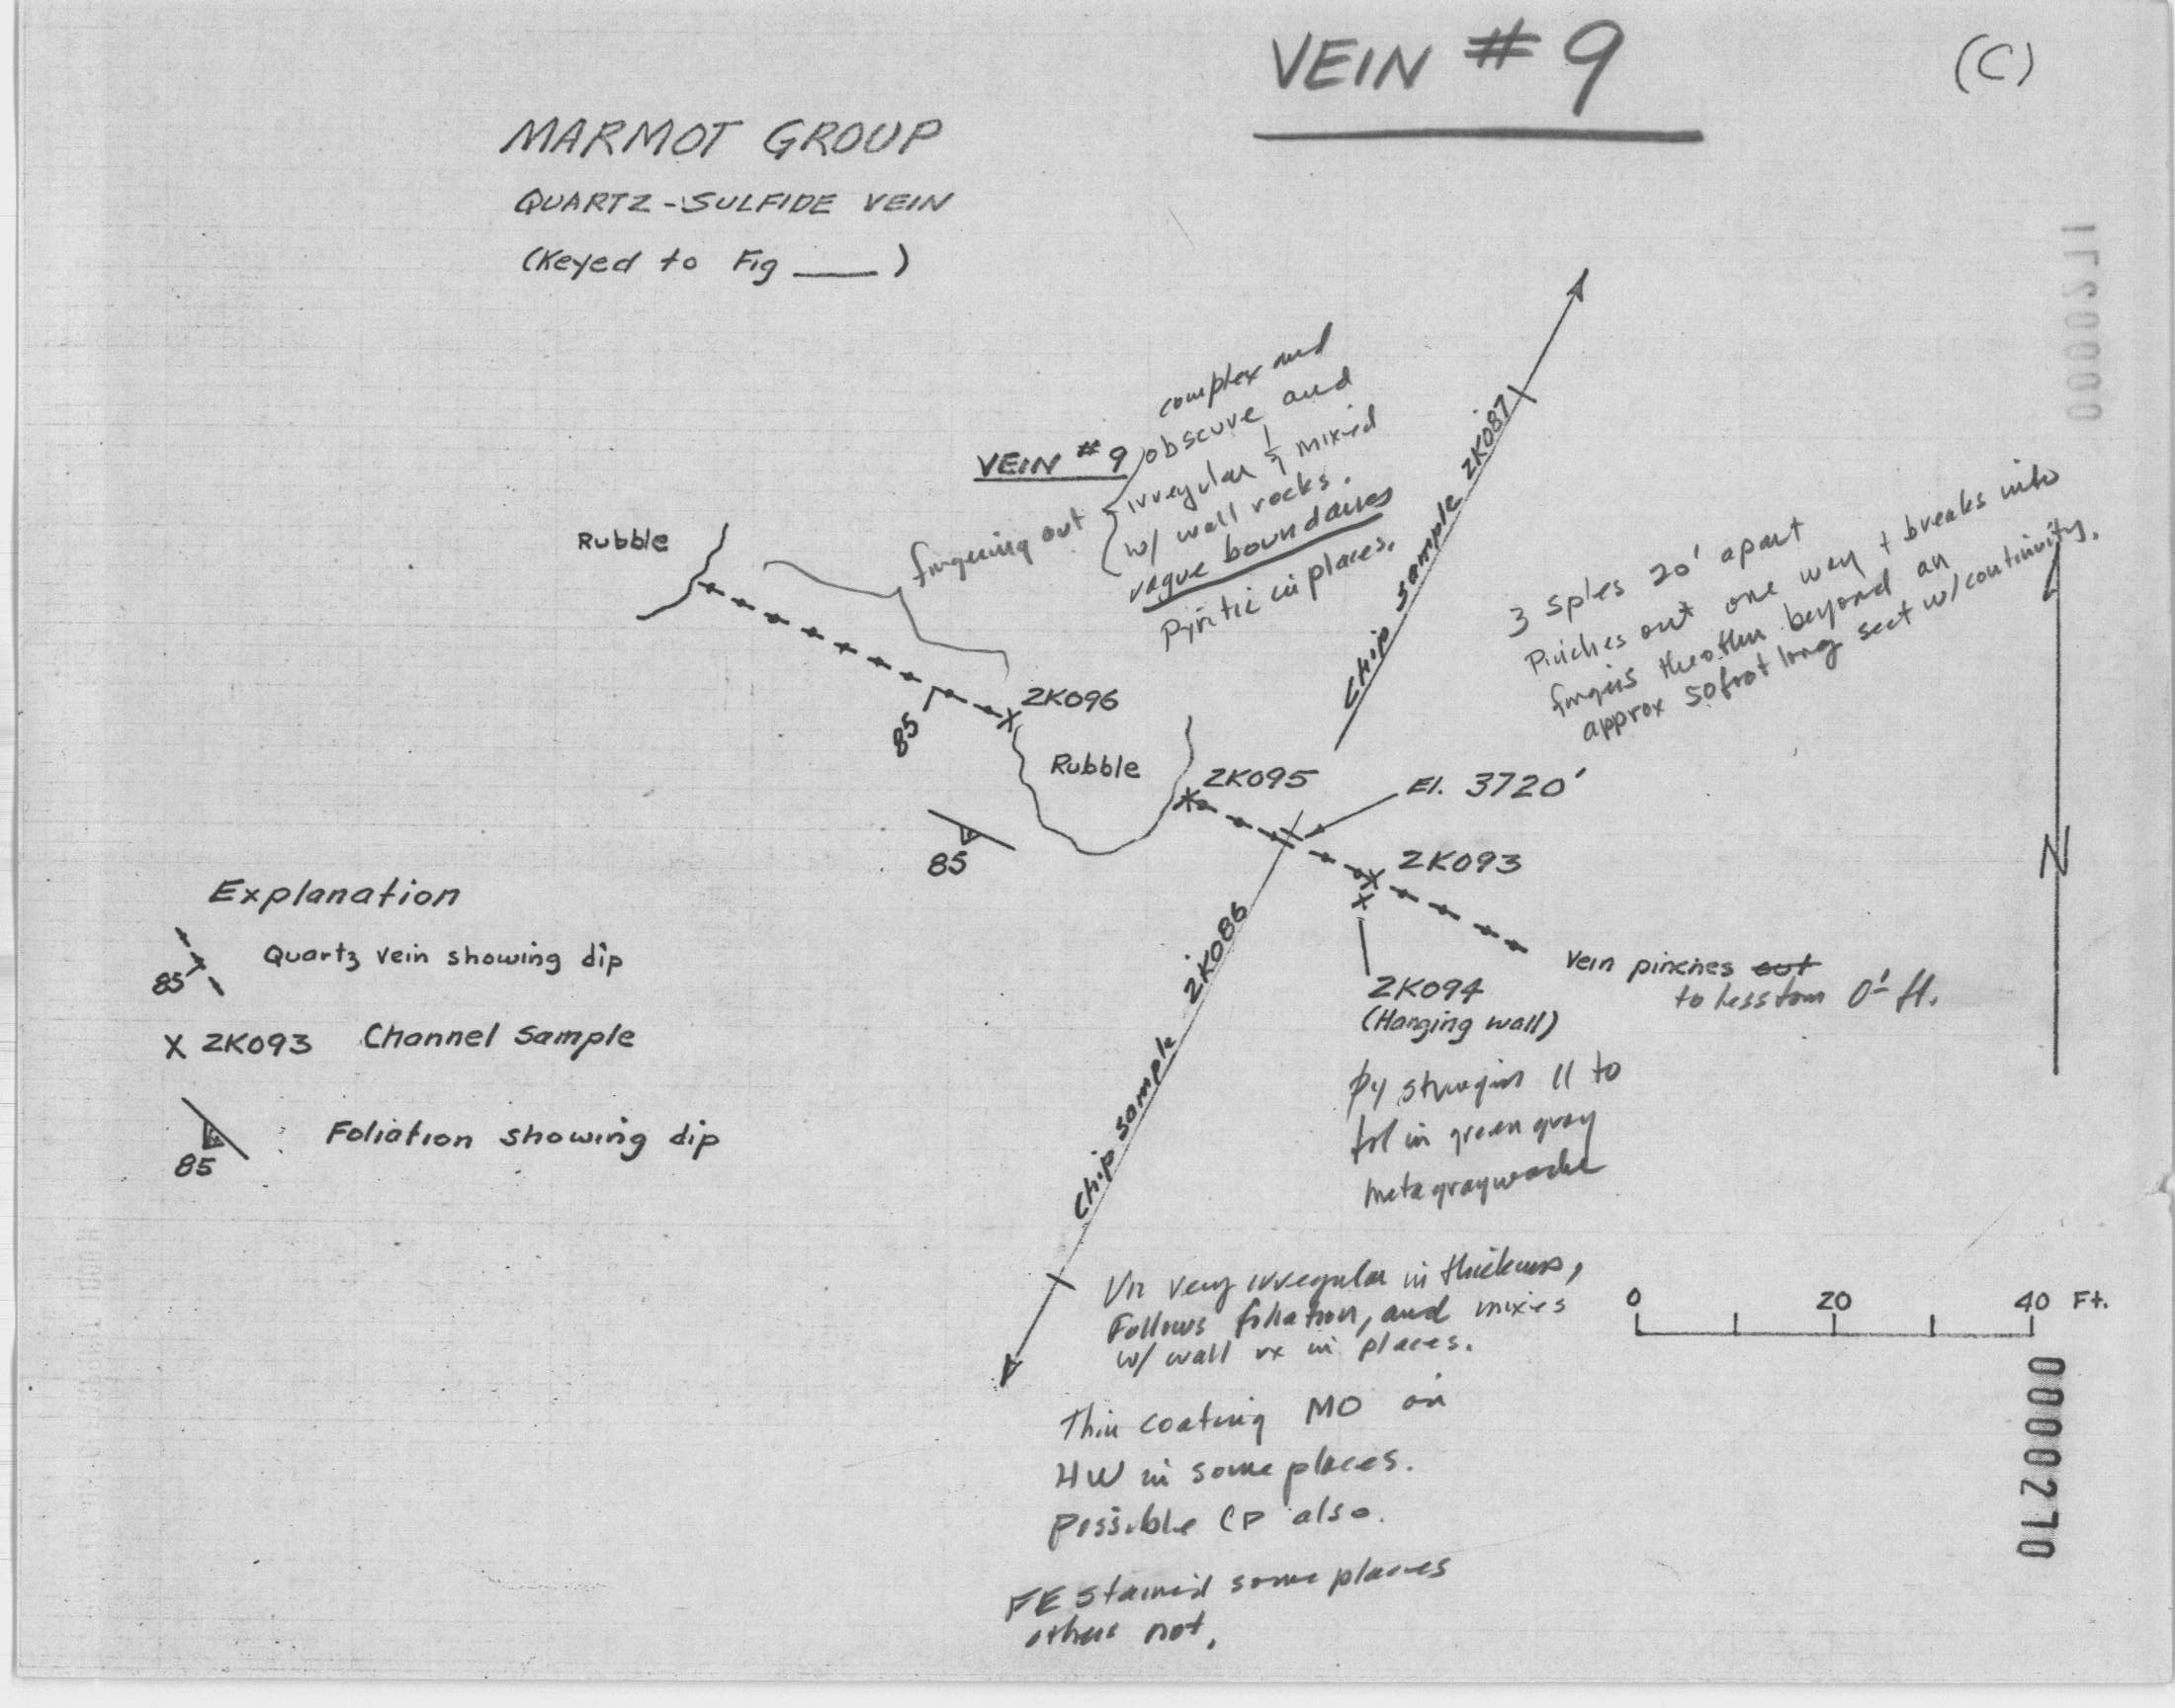 VEIN # 9
(C)
MARMOT GROUP
QUARTZ-SULFIDE VEIN
(Keyed to Fig ____ )
0000271
complex and
VEIN # 9
obscure and
irregular & mixed
w/ wall rocks.
vague boundaries
Pyritic in places.
fingering out
Rubble
Chip sample 2K087
3 sples 20' apart
Pinches out one way + breaks into
fingers the other beyond an
approx 50 foot long sect w/ continuity.
2K096
85
Rubble
2K095
El. 3720'
85
2K093
N
Chip sample 2K086
2K094
(Hanging wall)
Vein pinches out
to less than 0.1 ft.
Explanation
85 Quartz vein showing dip
X 2K093 Channel Sample
85 Foliation showing dip
py stringers || to
fol in green gray
metagraywacke
Vn very irregular in thickness,
Follows foliation, and mixes
w/ wall rx in places.
0 20 40 Ft.
Thin coating MO on
HW in some places.
Possible CP also.
FE stained some places
others not.
0000270